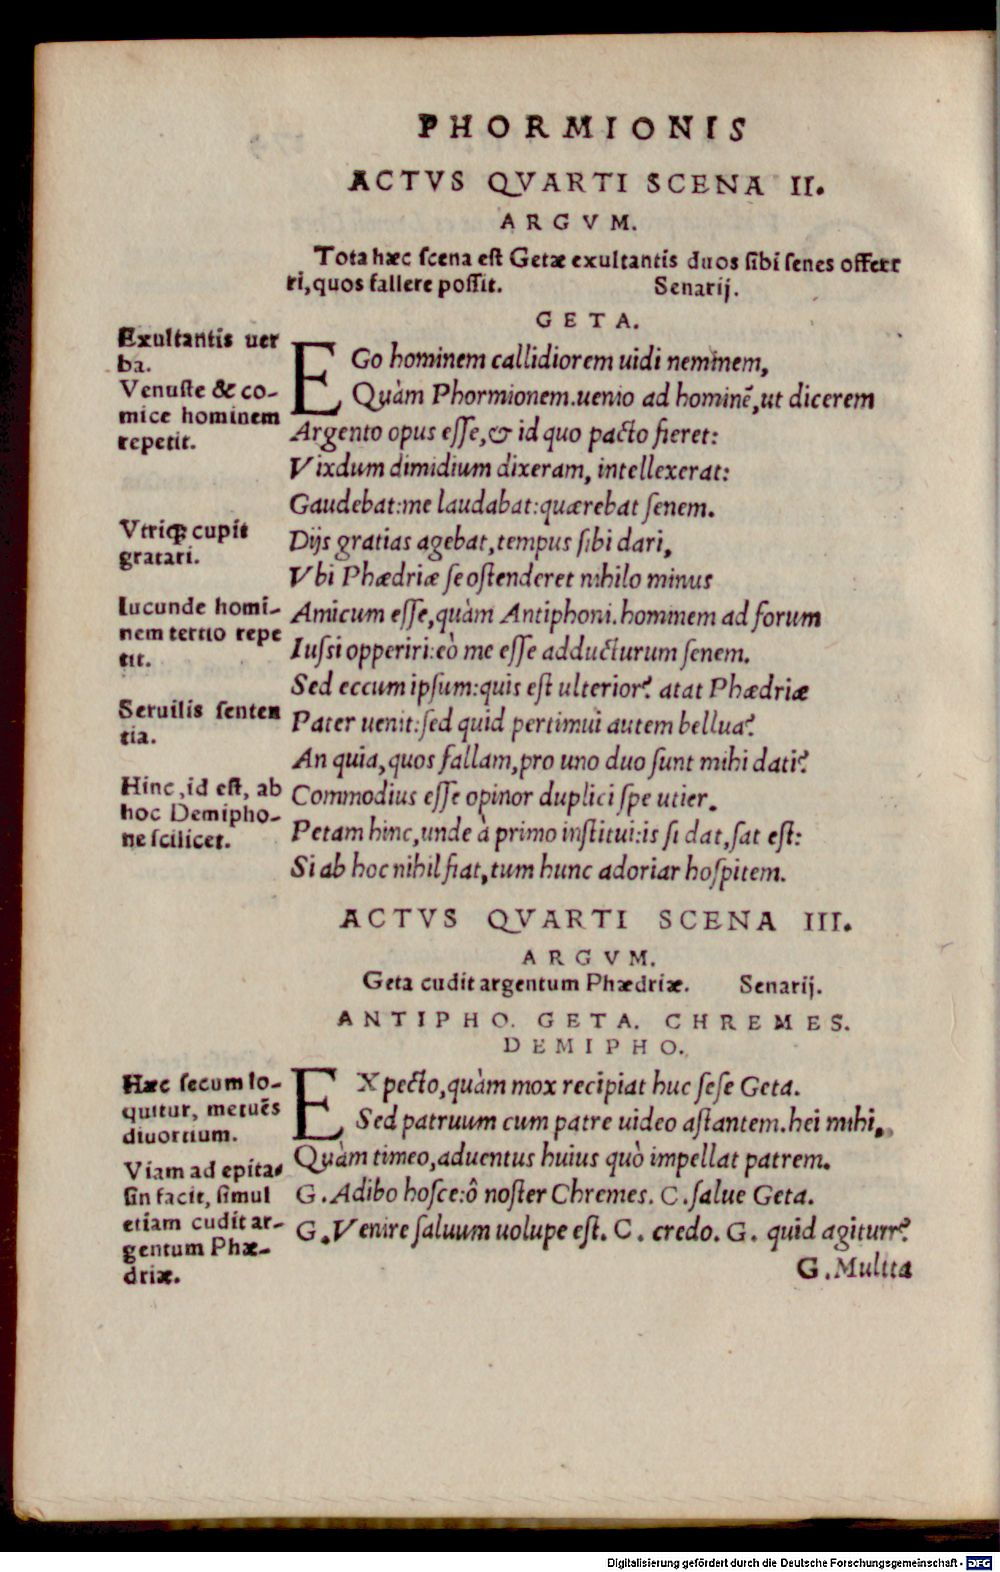 PHORMIONIS
ACTVS QVARTI SCENA II.
ARGVM.
Tota hæc scena est Getæ exultantis duos sibi senes offerr
ri, quos fallere possit. Senarij.
GETA.
Exultantis uer
ba.
Venuste & co-
mice hominem
repetit.
Vtriq; cupit
gratari.
Iucunde homi-
nem tertio repe
tit.
Seruilis senten
tia.
Hinc, id est, ab
hoc Demipho-
ne scilicet.
EGo hominem callidiorem uidi neminem,
Quàm Phormionem. uenio ad hominē, ut dicerem
Argento opus esse, & id quo pacto fieret:
Vixdum dimidium dixeram, intellexerat:
Gaudebat: me laudabat: quærebat senem.
Dijs gratias agebat, tempus sibi dari,
Vbi Phædriæ se ostenderet nihilo minus
Amicum esse, quàm Antiphoni. hominem ad forum
Iussi opperiri: eò me esse adducturum senem.
Sed eccum ipsum: quis est ulterior? atat Phædriæ
Pater uenit: sed quid pertimui autem bellua?
An quia, quos fallam, pro uno duo sunt mihi dati?
Commodius esse opinor duplici spe utier.
Petam hinc, unde à primo institui: is si dat, sat est:
Si ab hoc nihil fiat, tum hunc adoriar hospitem.
ACTVS QVARTI SCENA III.
ARGVM.
Geta cudit argentum Phædriæ. Senarij.
ANTIPHO. GETA. CHREMES.
DEMIPHO.
Hæc secum lo-
quitur, metuēs
diuortium.
Viam ad epita-
sin facit, simul
etiam cudit ar-
gentum Phæ-
driæ.
EXpecto, quàm mox recipiat huc sese Geta.
Sed patruum cum patre uideo astantem. hei mihi,
Quàm timeo, aduentus huius quò impellat patrem.
G. Adibo hosce: ô noster Chremes. C. salue Geta.
G. Venire saluum uolupe est. C. credo. G. quid agiturr?
G. Multta
Digitalisierung gefördert durch die Deutsche Forschungsgemeinschaft - DFG